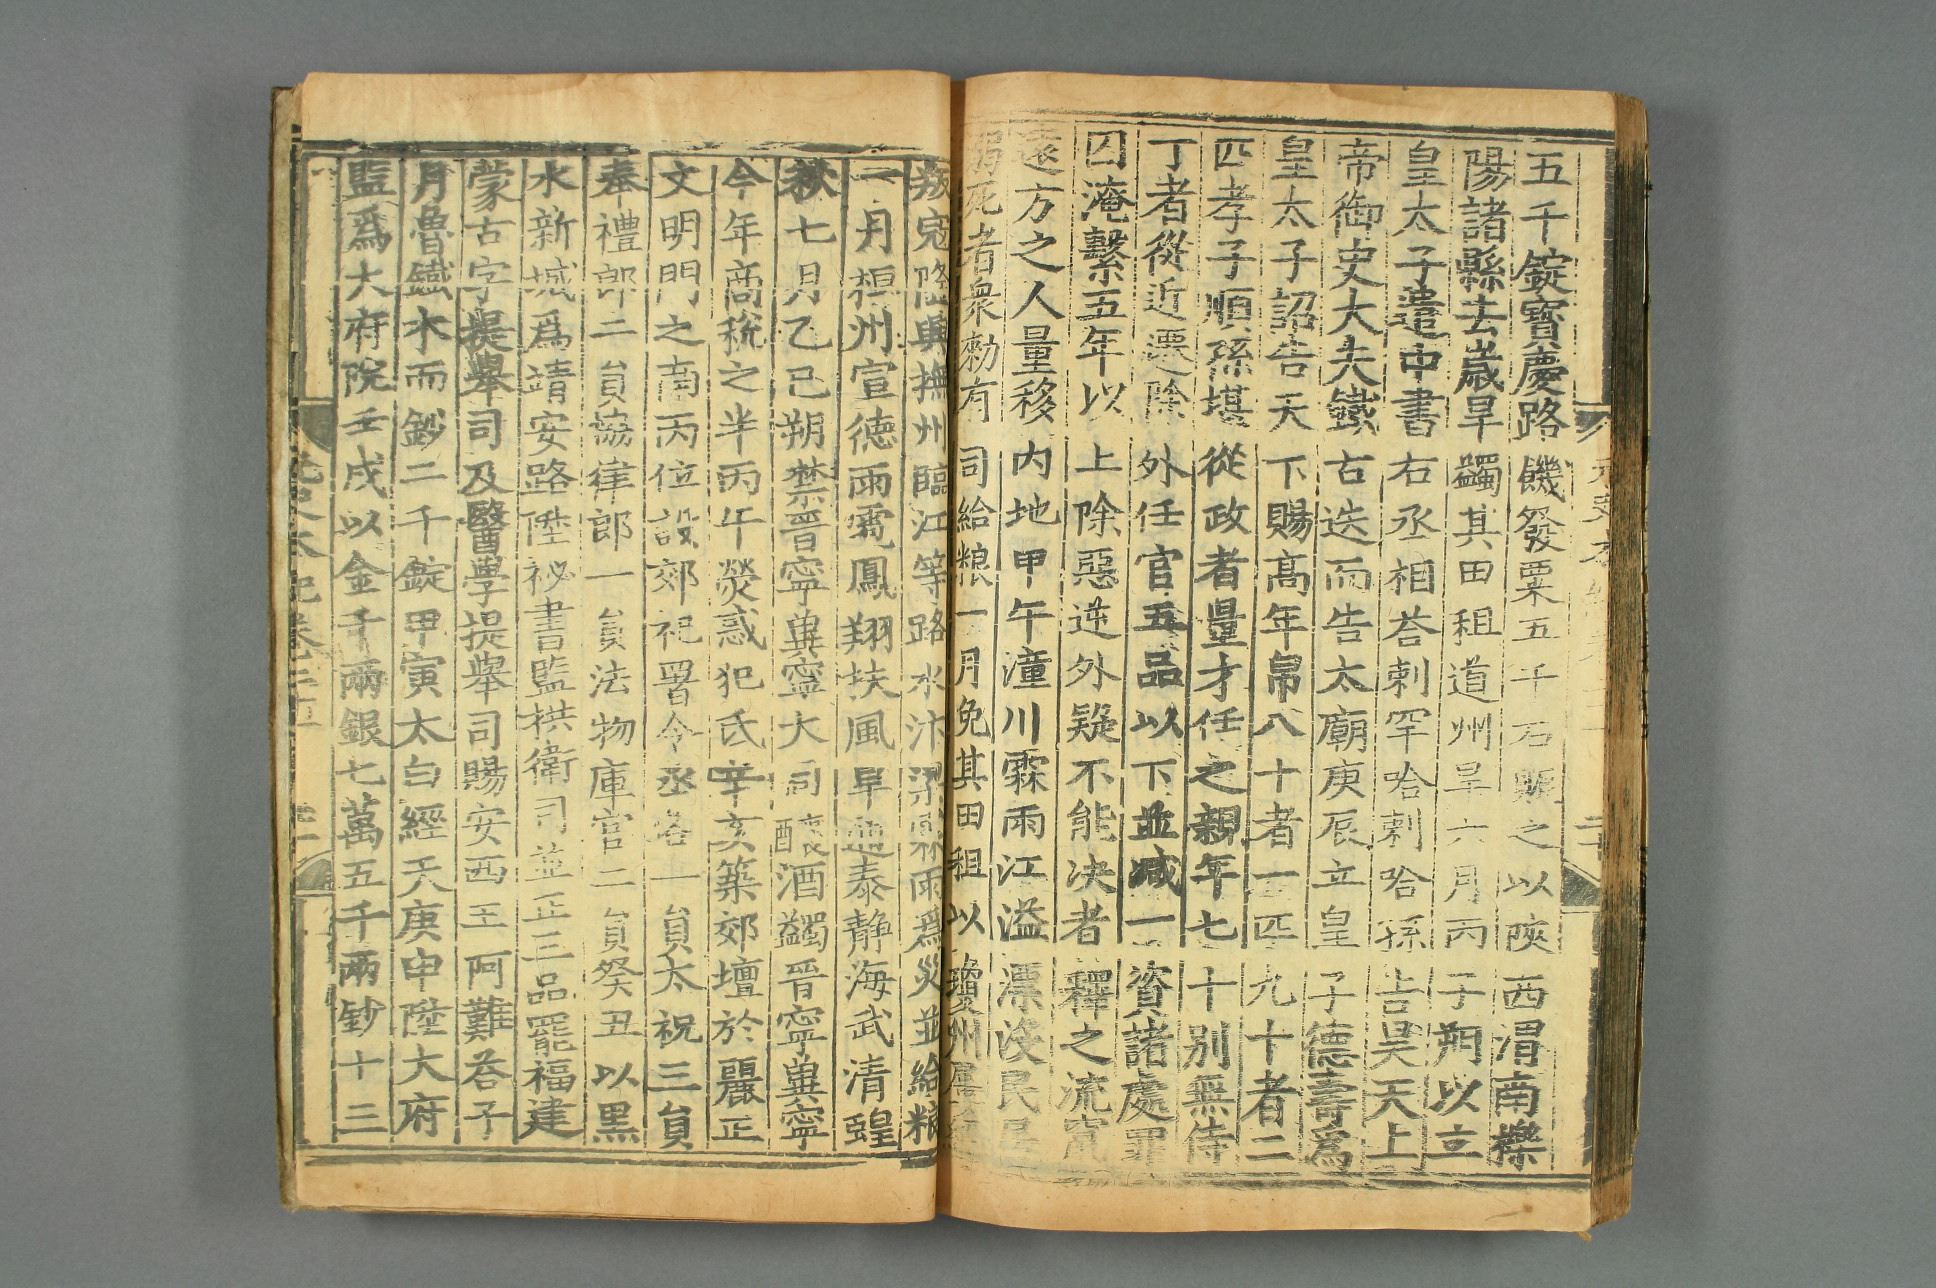 五千錠寶慶路饑發粟五千石賑之以陝西渭南櫟
陽諸縣去歲旱蠲其田租道州旱六月丙子朔以立
皇太子遣中書右丞相荅剌罕哈剌哈孫告昊天上
帝御史大夫鐵古迭而告太廟庚辰立皇子德壽為
皇太子詔告天下賜高年帛八十者一匹九十者二
匹孝子順孫堪從政者量才任之親年七十別無侍
丁者從近遷除外任官五品以下並減一資諸處罪
囚淹繫五年以上除惡逆外疑不能決者釋之流竄
遠方之人量移內地甲午潼川霖雨江溢漂沒民居
溺死者衆勑有司給粮一月免其田租以瓊州屢經
叛寇隆興撫州臨江等路水汴梁霖雨爲災並給粮
一月桓州宣德雨雹鳳翔扶風旱通泰靜海武清蝗
秋七月乙巳朔禁晋寧冀寧大同釀酒蠲晋寧冀寧
今年商稅之半丙午熒惑犯氐辛亥築郊壇於麗正
文明門之南丙位設郊祀署令丞各一員太祝三員
奉禮郎二員協律郎一員法物庫官二員癸丑以黑
水新城爲靖安路陞祕書監拱衛司並正三品罷福建
蒙古字提舉司及醫學提舉司賜安西王阿難荅子
月魯鐵木而鈔二千錠甲寅太白經天庚申陞大府
監爲大府院壬戌以金千兩銀七萬五千兩鈔十三
元史本紀卷二十一